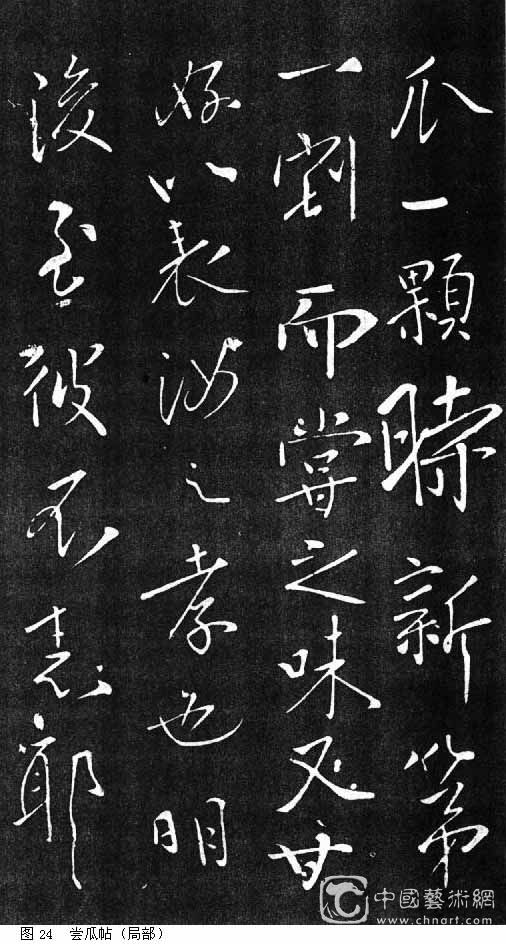 瓜一顆時新第
一割而嘗之味又甘
好以表汝之孝也明
後至彼不耶
中國藝術網
www.chnart.com
图 24 尝瓜帖（局部）